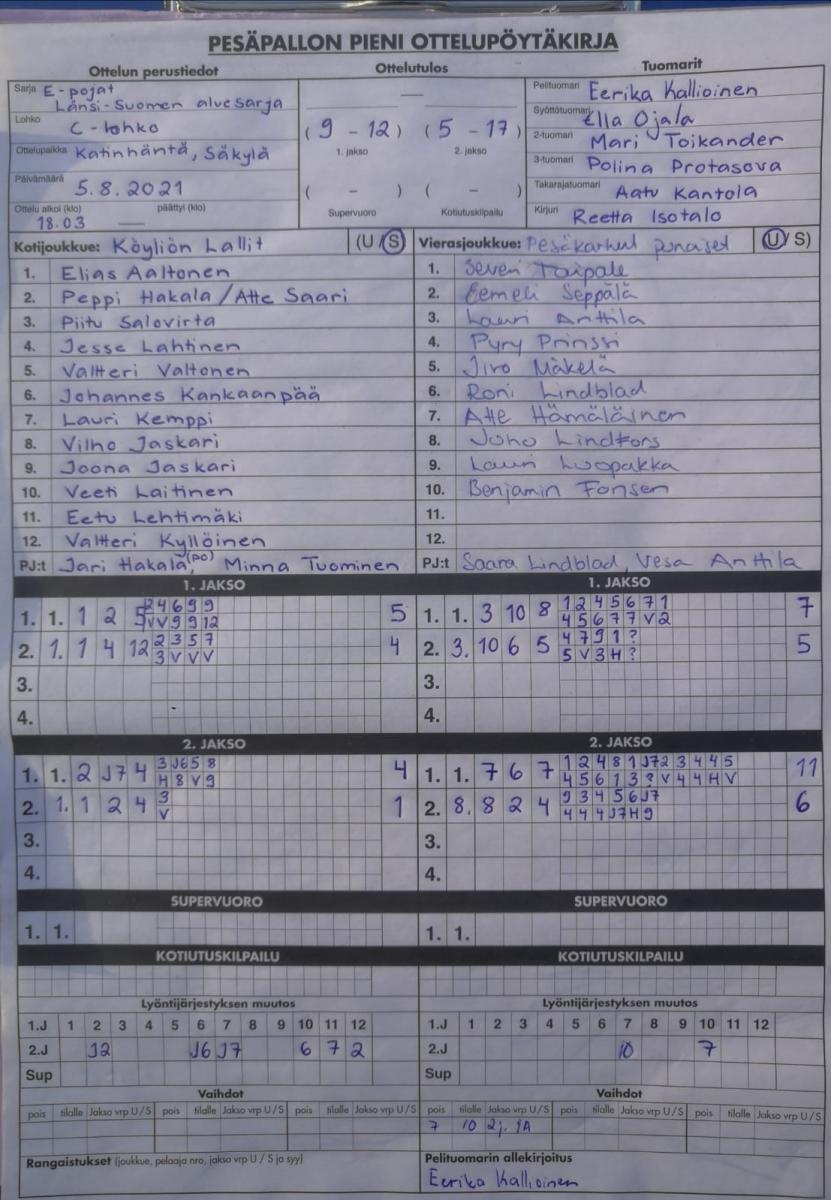 PESÄPALLON PIENI OTTELUPÖYTÄKIRJA
Ottelun perustiedot Ottelutulos Tuomarit
Sarja E-pojat
Länsi-Suomen aluesarja
Lohko C-lohko
Ottelupaikka Katinhäntä, Säkylä
Päivämäärä 5.8.2021
Ottelu alkoi (klo) päättyi (klo)
18.03 —
—
(9 - 12) (5 - 17)
1. jakso 2. jakso
( - ) ( - )
Supervuoro Kotiutuskilpailu
Pelituomari Eerika Kallioinen
Syöttötuomari Ella Ojala
2-tuomari Mari Toikander
3-tuomari Polina Protasova
Takarajatuomari Aatu Kantola
Kirjuri Reetta Isotalo
Kotijoukkue: Köyliön Lallit (U/S)
1. Elias Aaltonen
2. Peppi Hakala / Atte Saari
3. Piitu Salovirta
4. Jesse Lahtinen
5. Valtteri Valtonen
6. Johannes Kankaanpää
7. Lauri Kemppi
8. Vilho Jaskari
9. Joona Jaskari
10. Veeti Laitinen
11. Eetu Lehtimäki
12. Valtteri Kyllöinen
PJ:t Jari Hakala (po), Minna Tuominen
Vierasjoukkue: Pesäkarhut punaiset (U/S)
1. Severi Taipale
2. Eemeli Seppälä
3. Lauri Anttila
4. Pyry Prinssi
5. Jiro Mäkelä
6. Roni Lindblad
7. Atte Hämäläinen
8. Juho Lindfors
9. Lauri Luopakka
10. Benjamin Fonsen
11.
12.
PJ:t Saara Lindblad, Vesa Anttila
1. JAKSO
1. 1. 1 2 5 2 4 6 9 9 5
V V 9 9 12
2. 1. 1 4 12 2 3 5 7 4
3 V V V
3.
4.
1. JAKSO
1. 1. 3 10 8 1 2 4 5 6 7 1 7
4 5 6 7 7 V 2
2. 3. 10 6 5 4 7 9 1 ? 5
5 V 3 H ?
3.
4.
2. JAKSO
1. 1. 2 J7 4 3 J6 5 8 4
H 8 V 9
2. 1. 1 2 4 3 1
V
3.
4.
2. JAKSO
1. 1. 7 6 7 1 2 4 8 1 J7 2 3 4 4 5 11
4 5 6 1 3 ? V 4 4 H V
2. 8. 8 2 4 9 3 4 5 6 J7 6
4 4 4 J7 H 9
3.
4.
SUPERVUORO SUPERVUORO
1. 1. 1. 1.
KOTIUTUSKILPAILU KOTIUTUSKILPAILU
Lyöntijärjestyksen muutos Lyöntijärjestyksen muutos
1.J 1 2 3 4 5 6 7 8 9 10 11 12 1.J 1 2 3 4 5 6 7 8 9 10 11 12
2.J J2 J6 J7 6 7 2 2.J 10 7
Sup Sup
Vaihdot Vaihdot
pois tilalle Jakso vrp U/S pois tilalle Jakso vrp U/S pois tilalle Jakso vrp U/S pois tilalle Jakso vrp U/S pois tilalle Jakso vrp U/S pois tilalle Jakso vrp U/S
7 10 2j. 1A
Rangaistukset (joukkue, pelaaja nro, jakso vrp U / S ja syy) Pelituomarin allekirjoitus
Eerika Kallioinen